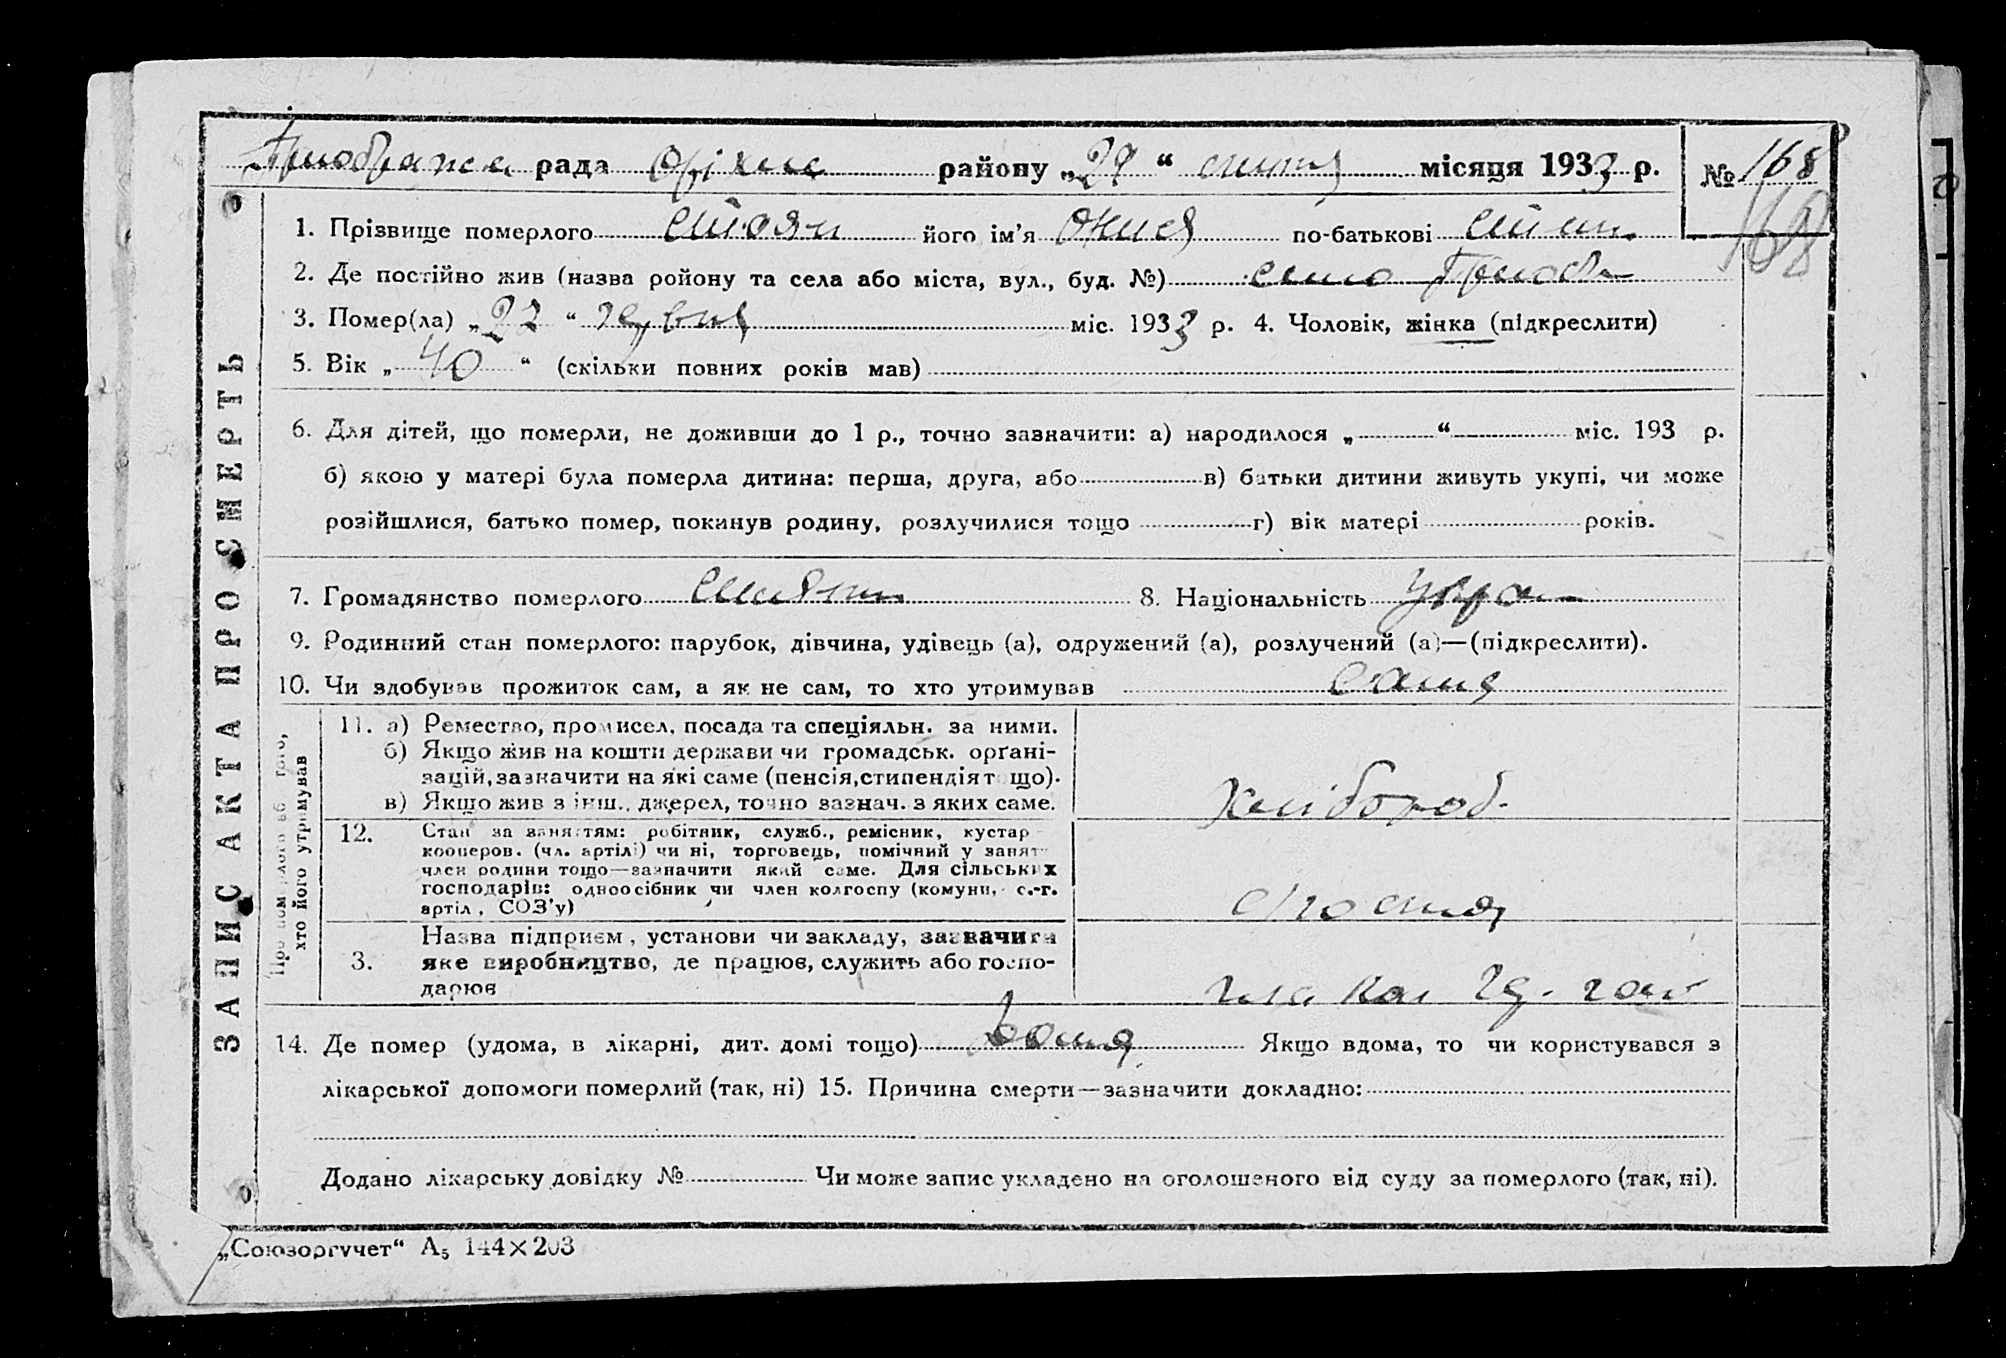 рада району „29“ місяця 1933 р. № 168
168
1. Прізвище померлого Стоян його ім'я по-батькові
2. Де постійно жив (назва ройону та села або міста, вул., буд. №) село
3. Помер(ла) „27“ червня міс. 1933 р. 4. Чоловік, жінка (підкреслити)
5. Вік „40“ (скільки повних років мав)
6. Для дітей, що померли, не доживши до 1 р., точно зазначити: а) народилося „ “ міс. 193 р.
б) якою у матері була померла дитина: перша, друга, або в) батьки дитини живуть укупі, чи може
розійшлися, батько помер, покинув родину, розлучилися тощо г) вік матері років.
7. Громадянство померлого 8. Національність Укра
9. Родинний стан померлого: парубок, дівчина, удівець (а), одружений (а), розлучений (а)—(підкреслити).
10. Чи здобував прожиток сам, а як не сам, то хто утримував сама
ЗАПИС АКТА ПРО СМЕРТЬ
Про померлого або того,
хто його утримував
11. а) Ремество, промисел, посада та спеціяльн. за ними.
б) Якщо жив на кошти держави чи громадськ. орґані-
зацій, зазначити на які саме (пенсія, стипендія тощо).
в) Якщо жив з інш. джерел, точно зазнач. з яких саме.
хлібороб.
12. Стан за заняттям: робітник, служб., ремісник, кустар
кооперов. (чл. артілі) чи ні, торговець, помічний у занят
член родини тощо—зазначити який саме. Для сільських
господарів: одноосібник чи член колгоспу (комуни, с.-г.
артіл, СОЗ'у)
3. Назва підприєм, установи чи закладу, зазначити
яке виробництво, де працює, служить або госпо-
дарює
14. Де помер (удома, в лікарні, дит. домі тощо) дома Якщо вдома, то чи користувався з
лікарської допомоги померлий (так, ні) 15. Причина смерти—зазначити докладно:
Додано лікарську довідку № Чи може запис укладено на оголошеного від суду за померлого (так, ні).
„Союзоргучет“ А5 144×203